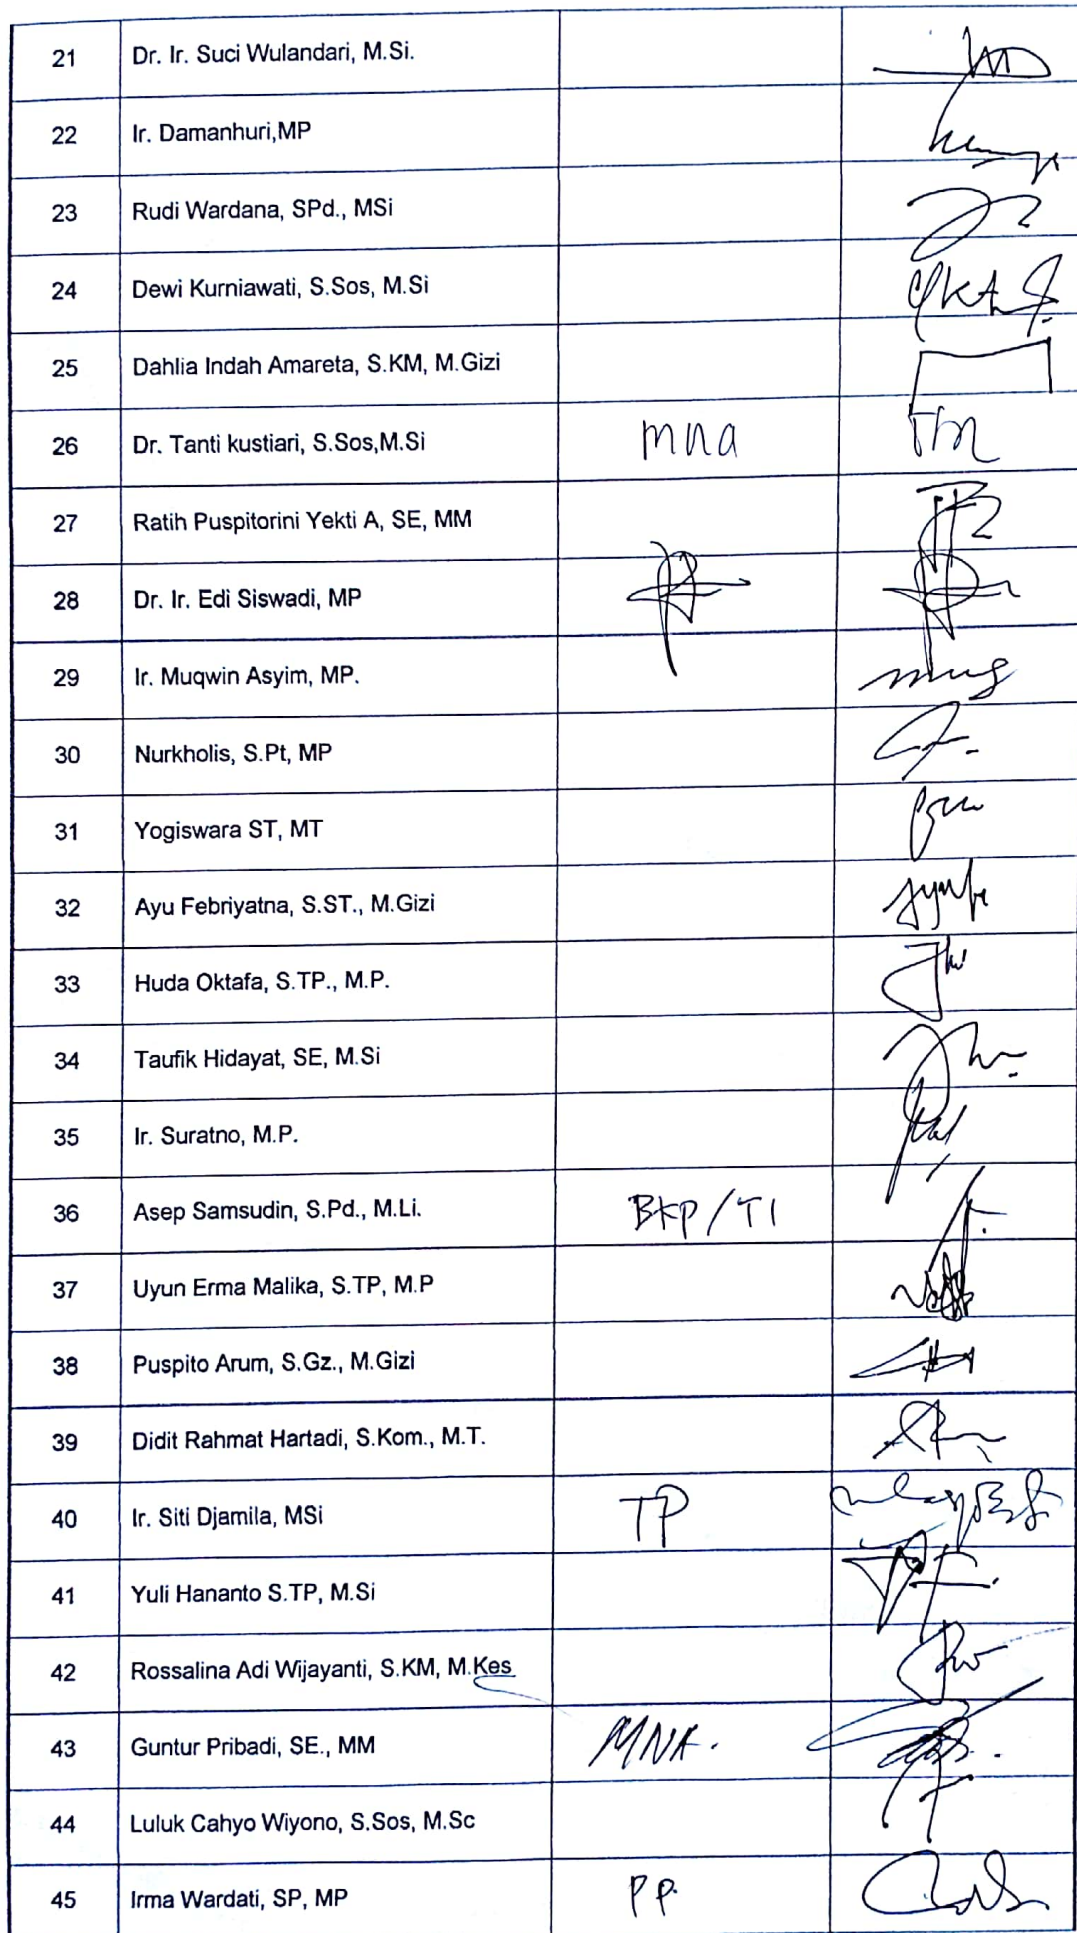 21 Dr. Ir. Suci Wulandari, M.Si.
22 Ir. Damanhuri,MP
23 Rudi Wardana, SPd., MSi
24 Dewi Kurniawati, S.Sos, M.Si
25 Dahlia Indah Amareta, S.KM, M.Gizi
26 Dr. Tanti kustiari, S.Sos,M.Si mna
27 Ratih Puspitorini Yekti A, SE, MM
28 Dr. Ir. Edi Siswadi, MP
29 Ir. Muqwin Asyim, MP.
30 Nurkholis, S.Pt, MP
31 Yogiswara ST, MT
32 Ayu Febriyatna, S.ST., M.Gizi
33 Huda Oktafa, S.TP., M.P.
34 Taufik Hidayat, SE, M.Si
35 Ir. Suratno, M.P.
36 Asep Samsudin, S.Pd., M.Li. BKP/TI
37 Uyun Erma Malika, S.TP, M.P
38 Puspito Arum, S.Gz., M.Gizi
39 Didit Rahmat Hartadi, S.Kom., M.T.
40 Ir. Siti Djamila, MSi TP
41 Yuli Hananto S.TP, M.Si
42 Rossalina Adi Wijayanti, S.KM, M.Kes
43 Guntur Pribadi, SE., MM MNA.
44 Luluk Cahyo Wiyono, S.Sos, M.Sc
45 Irma Wardati, SP, MP PP.